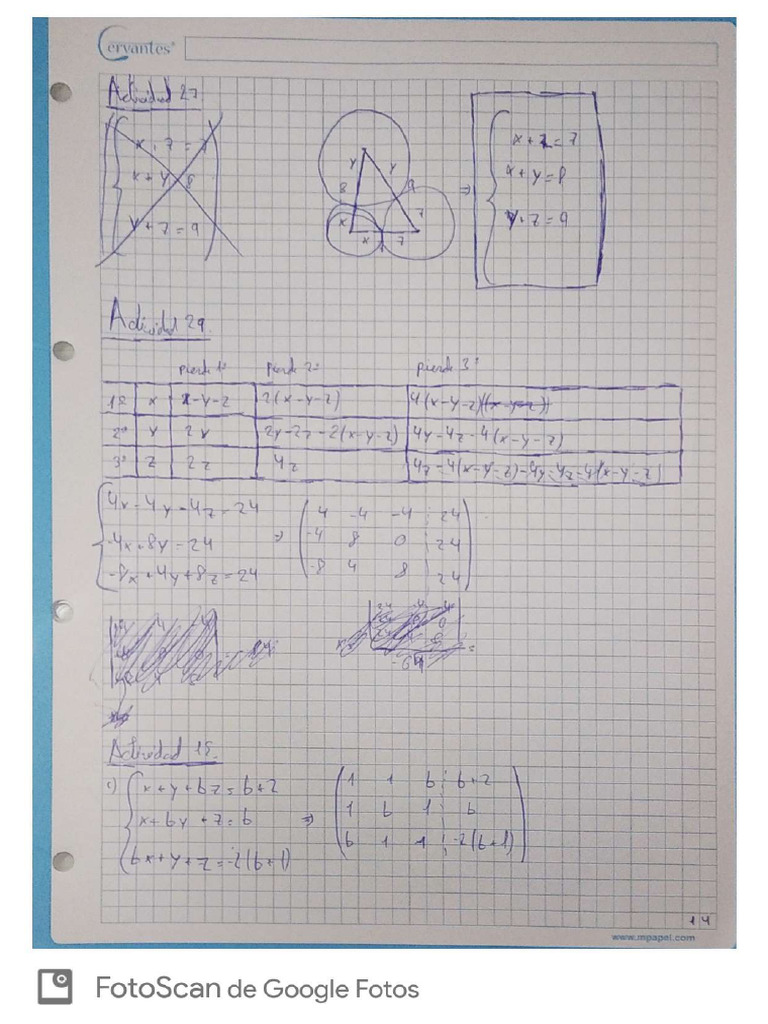 Cervantes
Actividad 27
x + z = 7
x + y = 8
y + z = 9
y y
8 9
x 7
x 7
⇒
x + z = 7
x + y = 8
y + z = 9
Actividad 29.
pierde 1º pierde 2º pierde 3º
1º x x-y-z 2(x-y-z) 4(x-y-z)
2º y 2y 2y-2z-2(x-y-z) 4y-4z-4(x-y-z)
3º z 2z 4z 4z-4(x-y-z)-4y-4z-4(x-y-z)
4x-4y-4z=24 ⇒ 4 -4 -4 24
-4x+8y=24 -4 8 0 24
-8x+4y+8z=24 -8 4 8 24
Actividad 18.
c) x+y+bz=b+2 ⇒ 1 1 b b+2
x+by+z=b 1 b 1 b
bx+y+z=-2(b+1) b 1 1 -2(b+1)
14
www.mpapel.com
FotoScan de Google Fotos